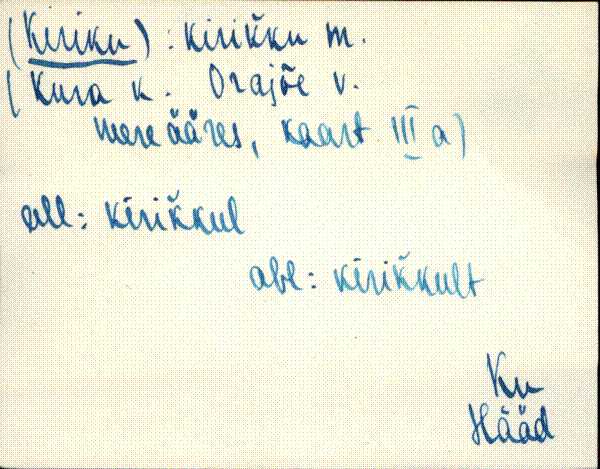 (Kiriku) : kirik̆ku m.
(Kura k. Orajõe v.
mere ääres, kaart III a)
all: kirik̆kul
abl: kirik̆kult
Kn
Hääd